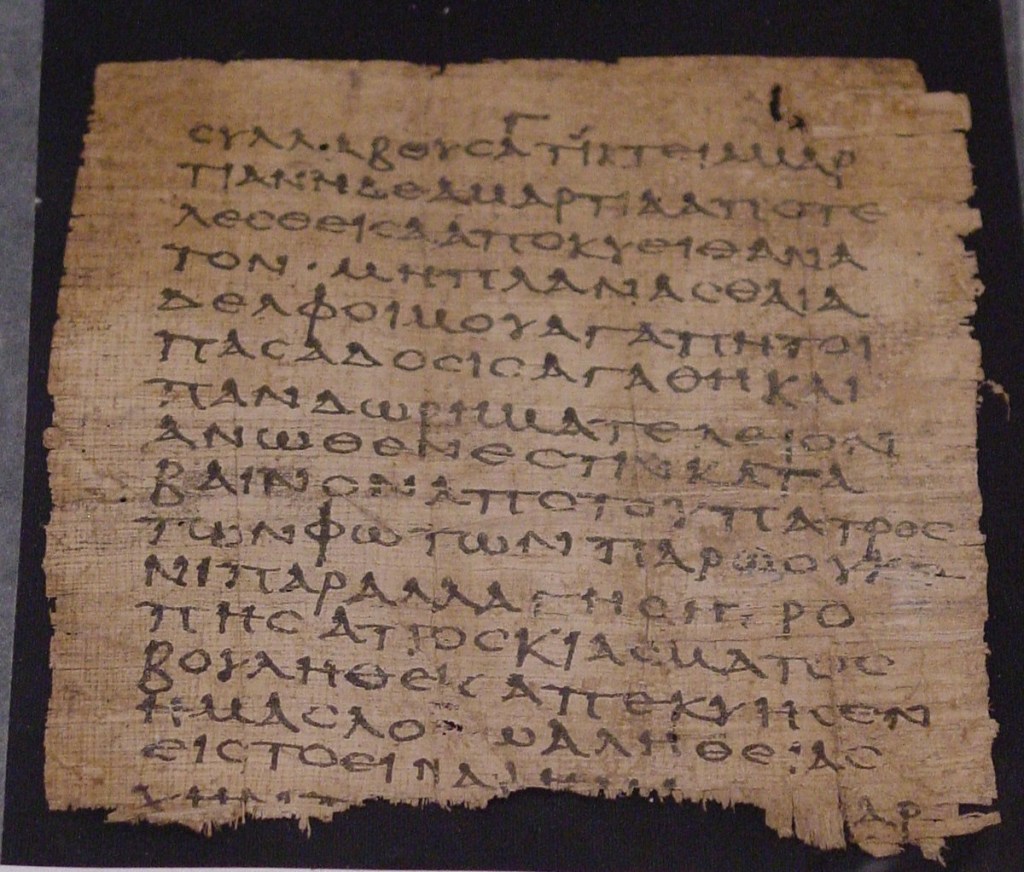 ϹΥΛΛΑΒΟΥϹΑΤΙΚΤΕΙΑΜΑΡ
ΤΙΑΝΗΔΕΑΜΑΡΤΙΑΑΠΟΤΕ
ΛΕϹΘΕΙϹΑΑΠΟΚΥΕΙΘΑΝΑ
ΤΟΝ·ΜΗΠΛΑΝΑϹΘΑΙΑ
ΔΕΛΦΟΙΜΟΥΑΓΑΠΗΤΟΙ
ΠΑϹΑΔΟϹΙϹΑΓΑΘΗΚΑΙ
ΠΑΝΔΩΡΗΜΑΤΕΛΕΙΟΝ
ΑΝΩΘΕΝΕϹΤΙΝΚΑΤΑ
ΒΑΙΝΟΝΑΠΟΤΟΥΠΑΤΡΟϹ
ΤΩΝΦΩΤΩΝΠΑΡΩΟΥΚΕ
ΝΙΠΑΡΑΛΛΑΓΗϹΗΤΡΟ
ΠΗϹΑΠΟϹΚΙΑϹΜΑΤΟϹ
ΒΟΥΛΗΘΕΙϹΑΠΕΚΥΗϹΕΝ
ΗΜΑϹΛΟΓΩΑΛΗΘΕΙΑϹ
ΕΙϹΤΟΕΙΝΑΙ
ΑΡ